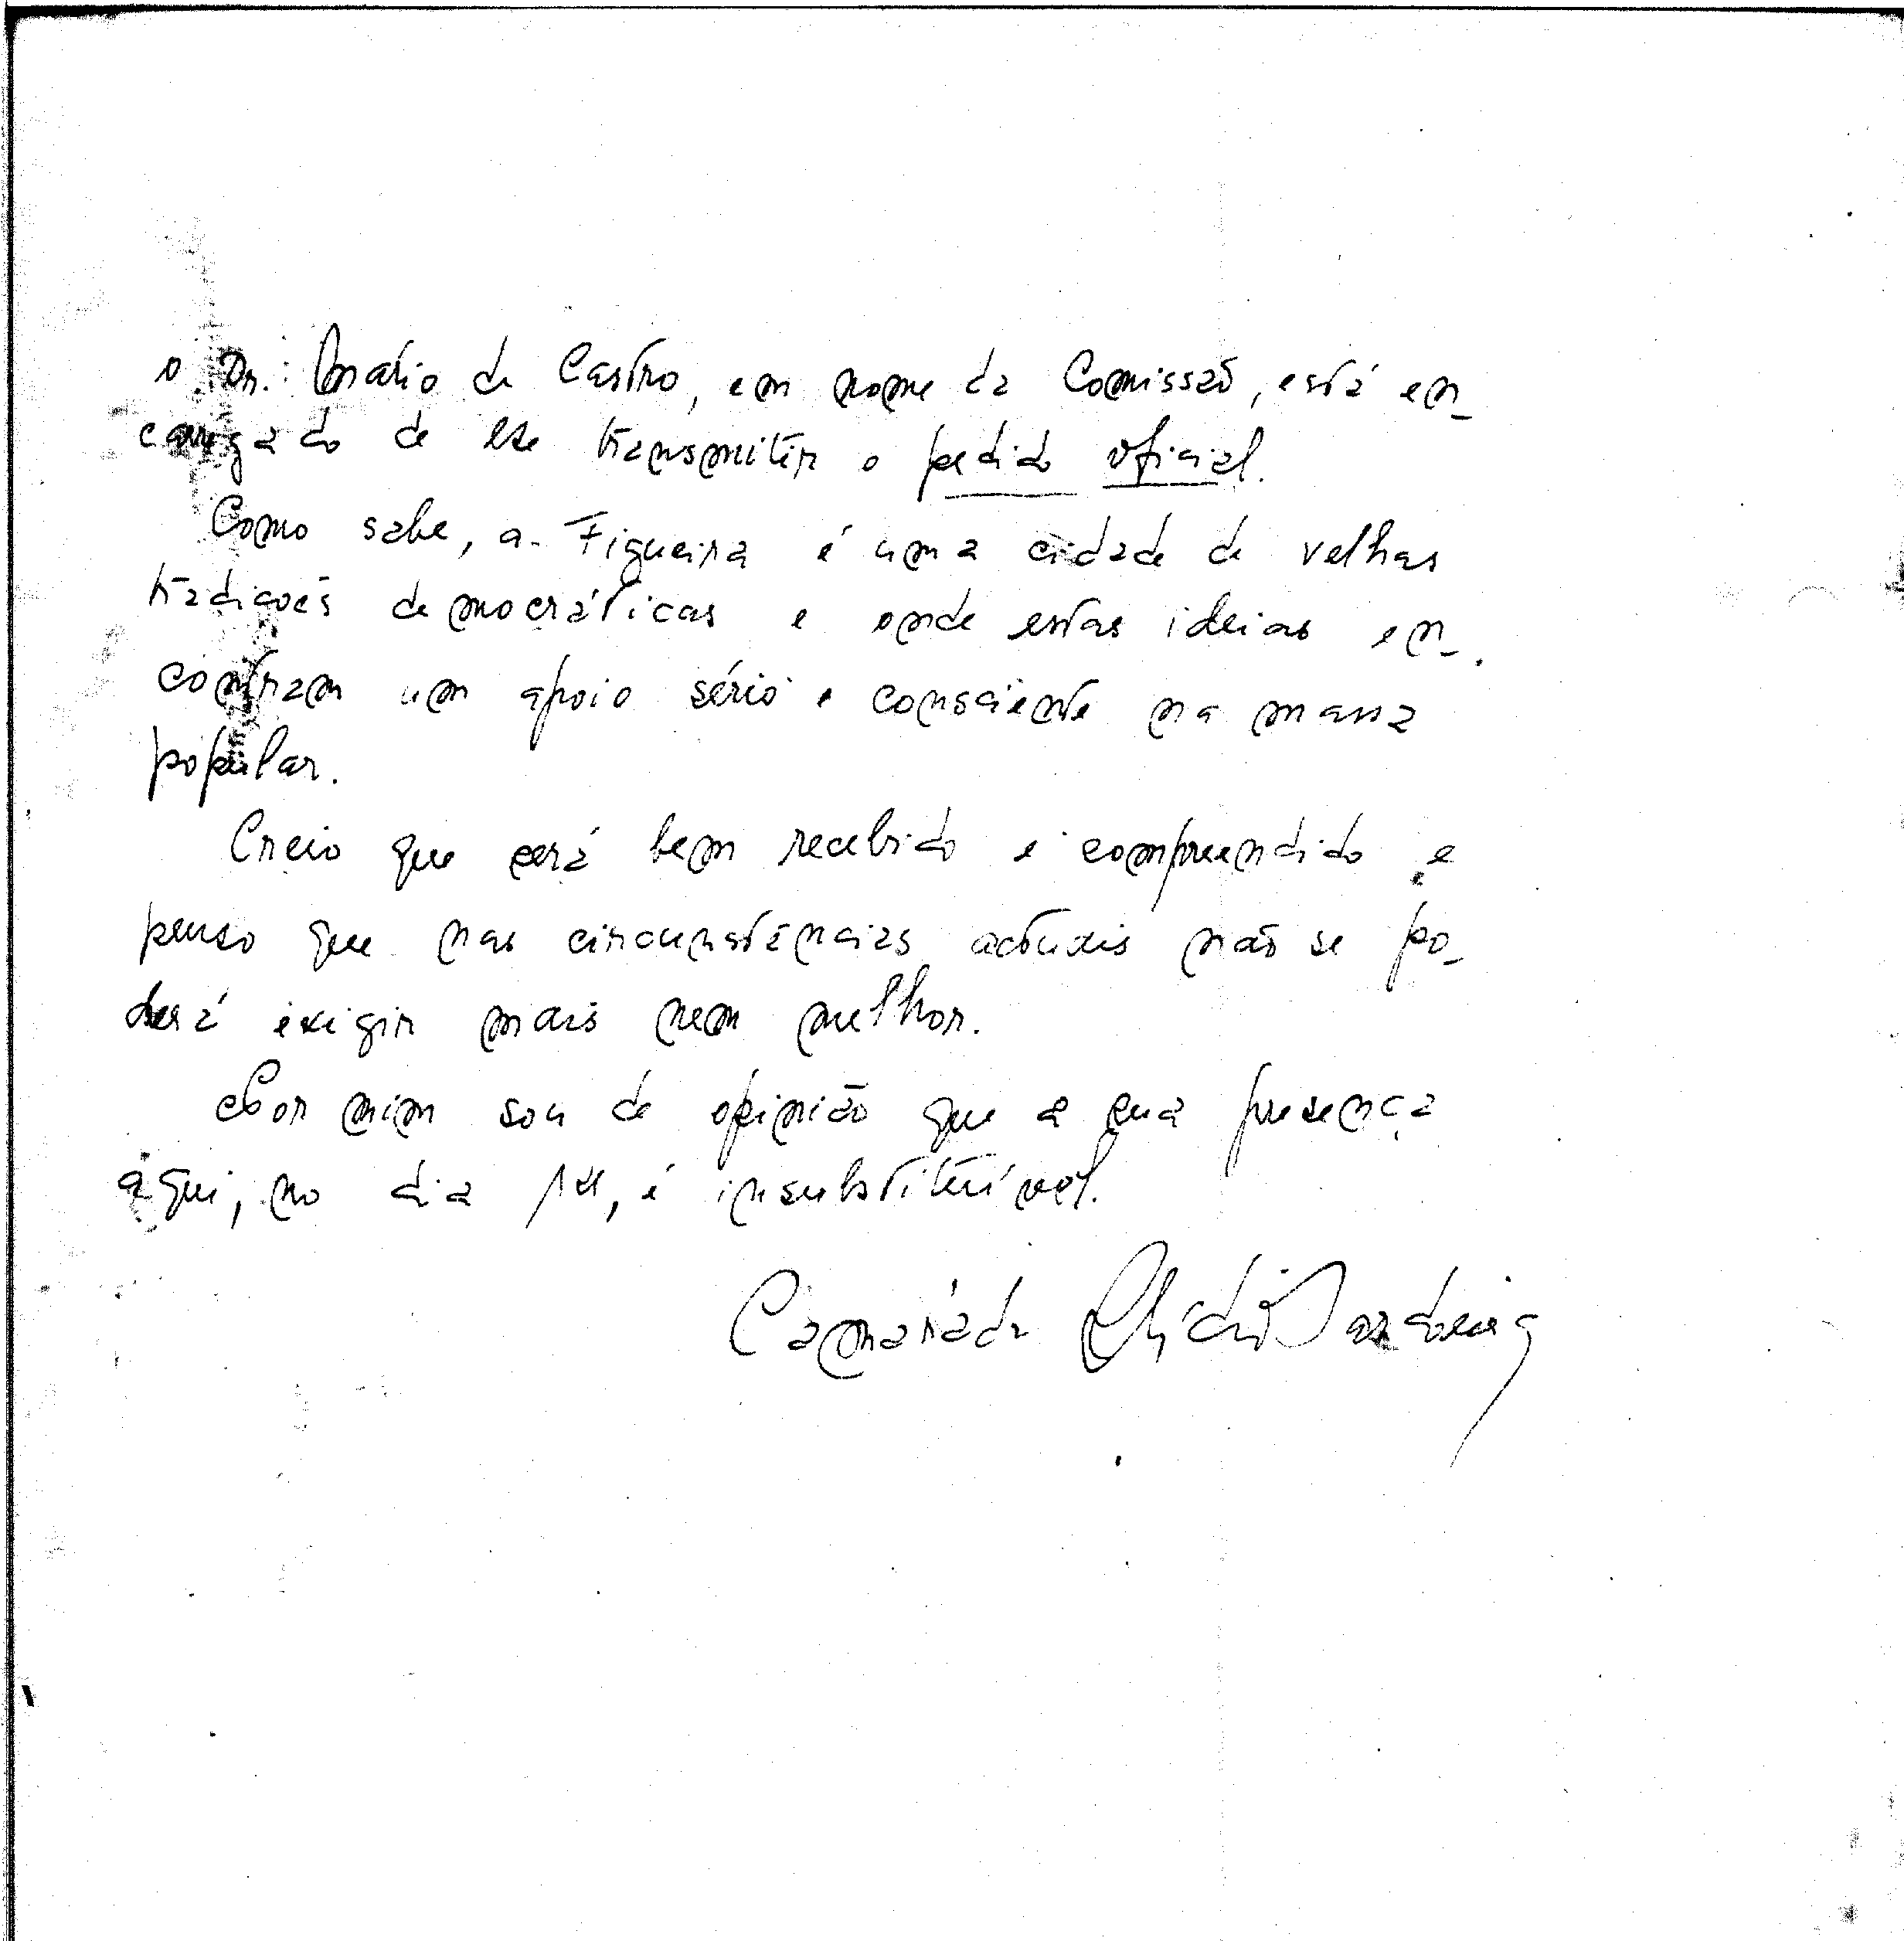 o Dr. Mário de Castro, em nome da Comissão, está en-
carregado de lhe transmitir o pedido oficial.
Como sabe, a Figueira é uma cidade de velhas
tradições democráticas e onde estas ideias en-
contram um apoio sério e consciente na massa
popular.
Creio que será bem recebido e compreendido e
penso que nas circunstâncias actuais não se po-
derá exigir mais nem melhor.
Por mim sou de opinião que a sua presença
aqui, no dia 14, é insubstituível.
Camarada